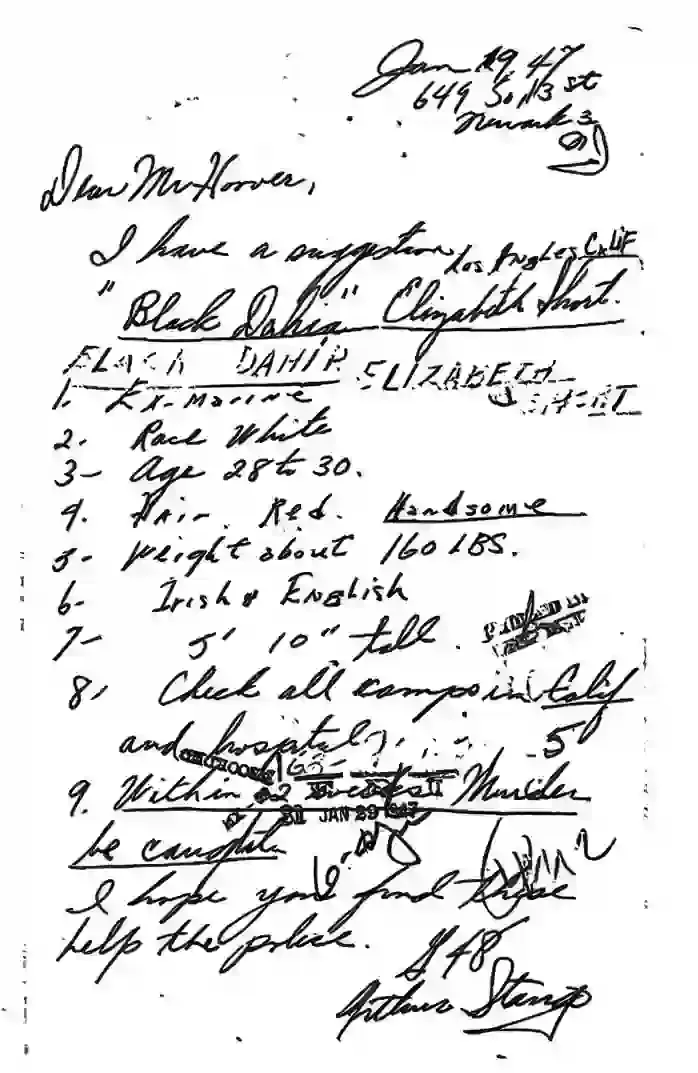 Jan 19, 47
649 So, 13 st
Newark 3
NJ
Dear Mr Hoover,
I have a suggestion Los Angles CaLiF
"Black Dahia" Elizabeth Short.
BLACK DAHIA ELIZABETH
SHORT
1. Ex-marine
2. Race White
3- Age 28 to 30.
4. Hair Red. Handsome
5- Weight about 160 LBS.
6- Irish & English
7- 5' 10" tall.
8, Check all camps in Calif
and hospitals,
5
9. Within 2 weeks Murder
31 JAN 29 1947
be caught
I hope you find these
help the police.
48
Arthur